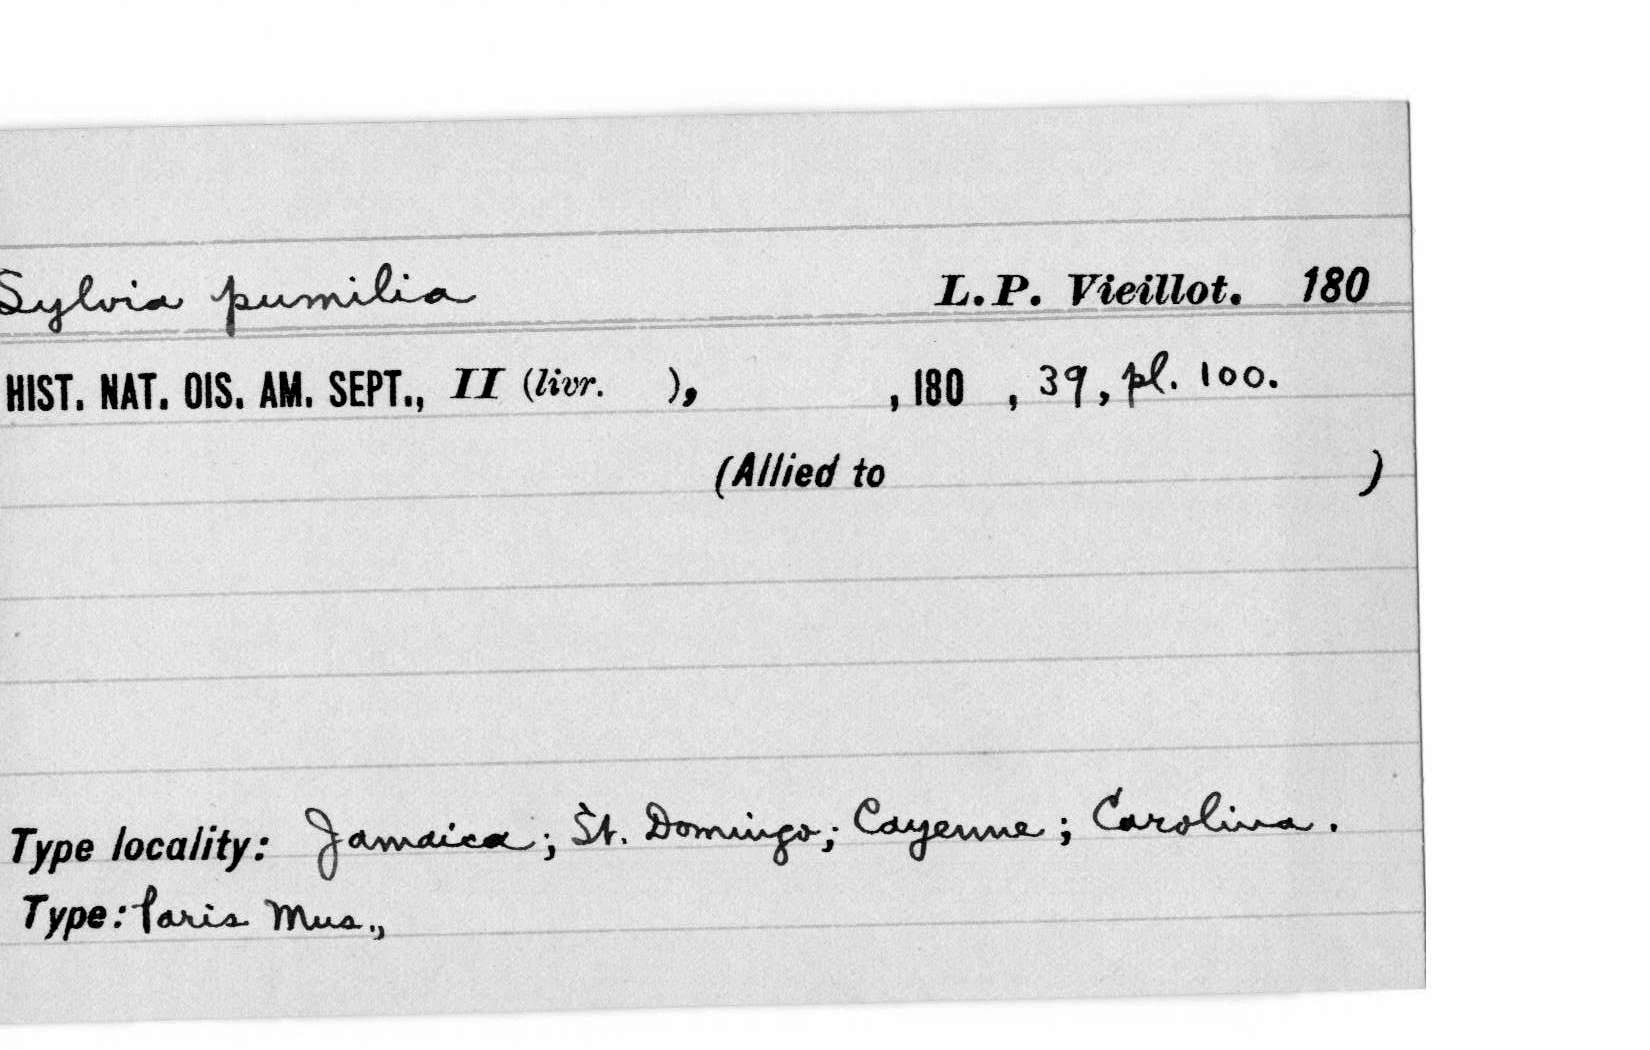 Sylvia pumilia L. P. Vieillot. 180
HIST. NAT. OIS. AM. SEPT., II (livr. ), , 180 , 39, pl. 100.
(Allied to )
Type locality: Jamaica; St. Domingo; Cayenne; Carolina.
Type: Paris Mus.,